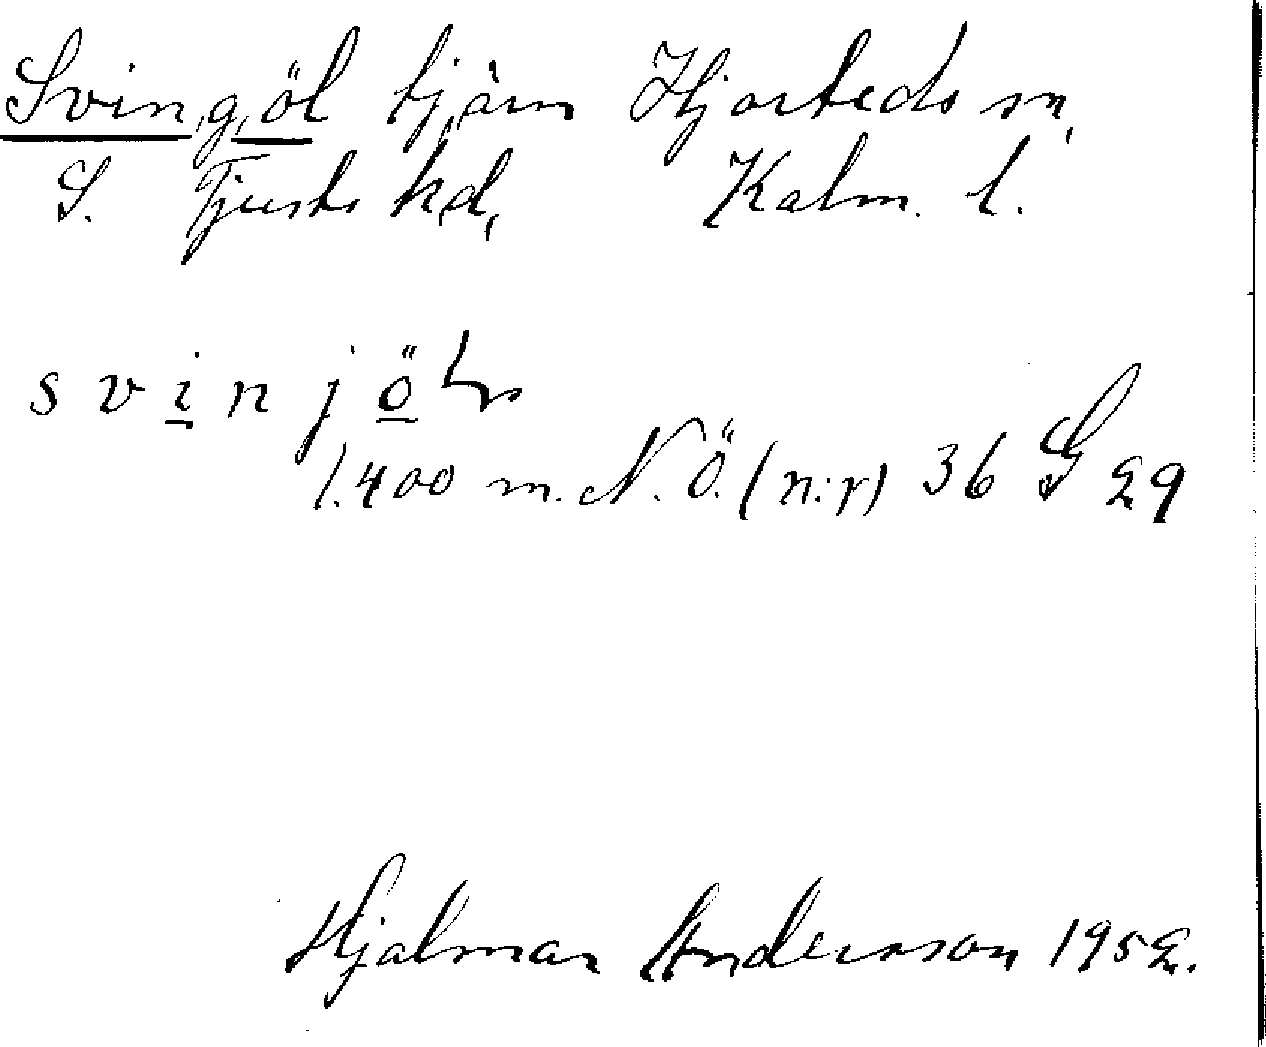 Svingöl tjärn Hjorteds sn,
S. Tjusts hd, Kalm. l.
svinjöLn
1.400 m. N.Ö. (n:r) 36 G 29
Hjalmar Andersson 1952.